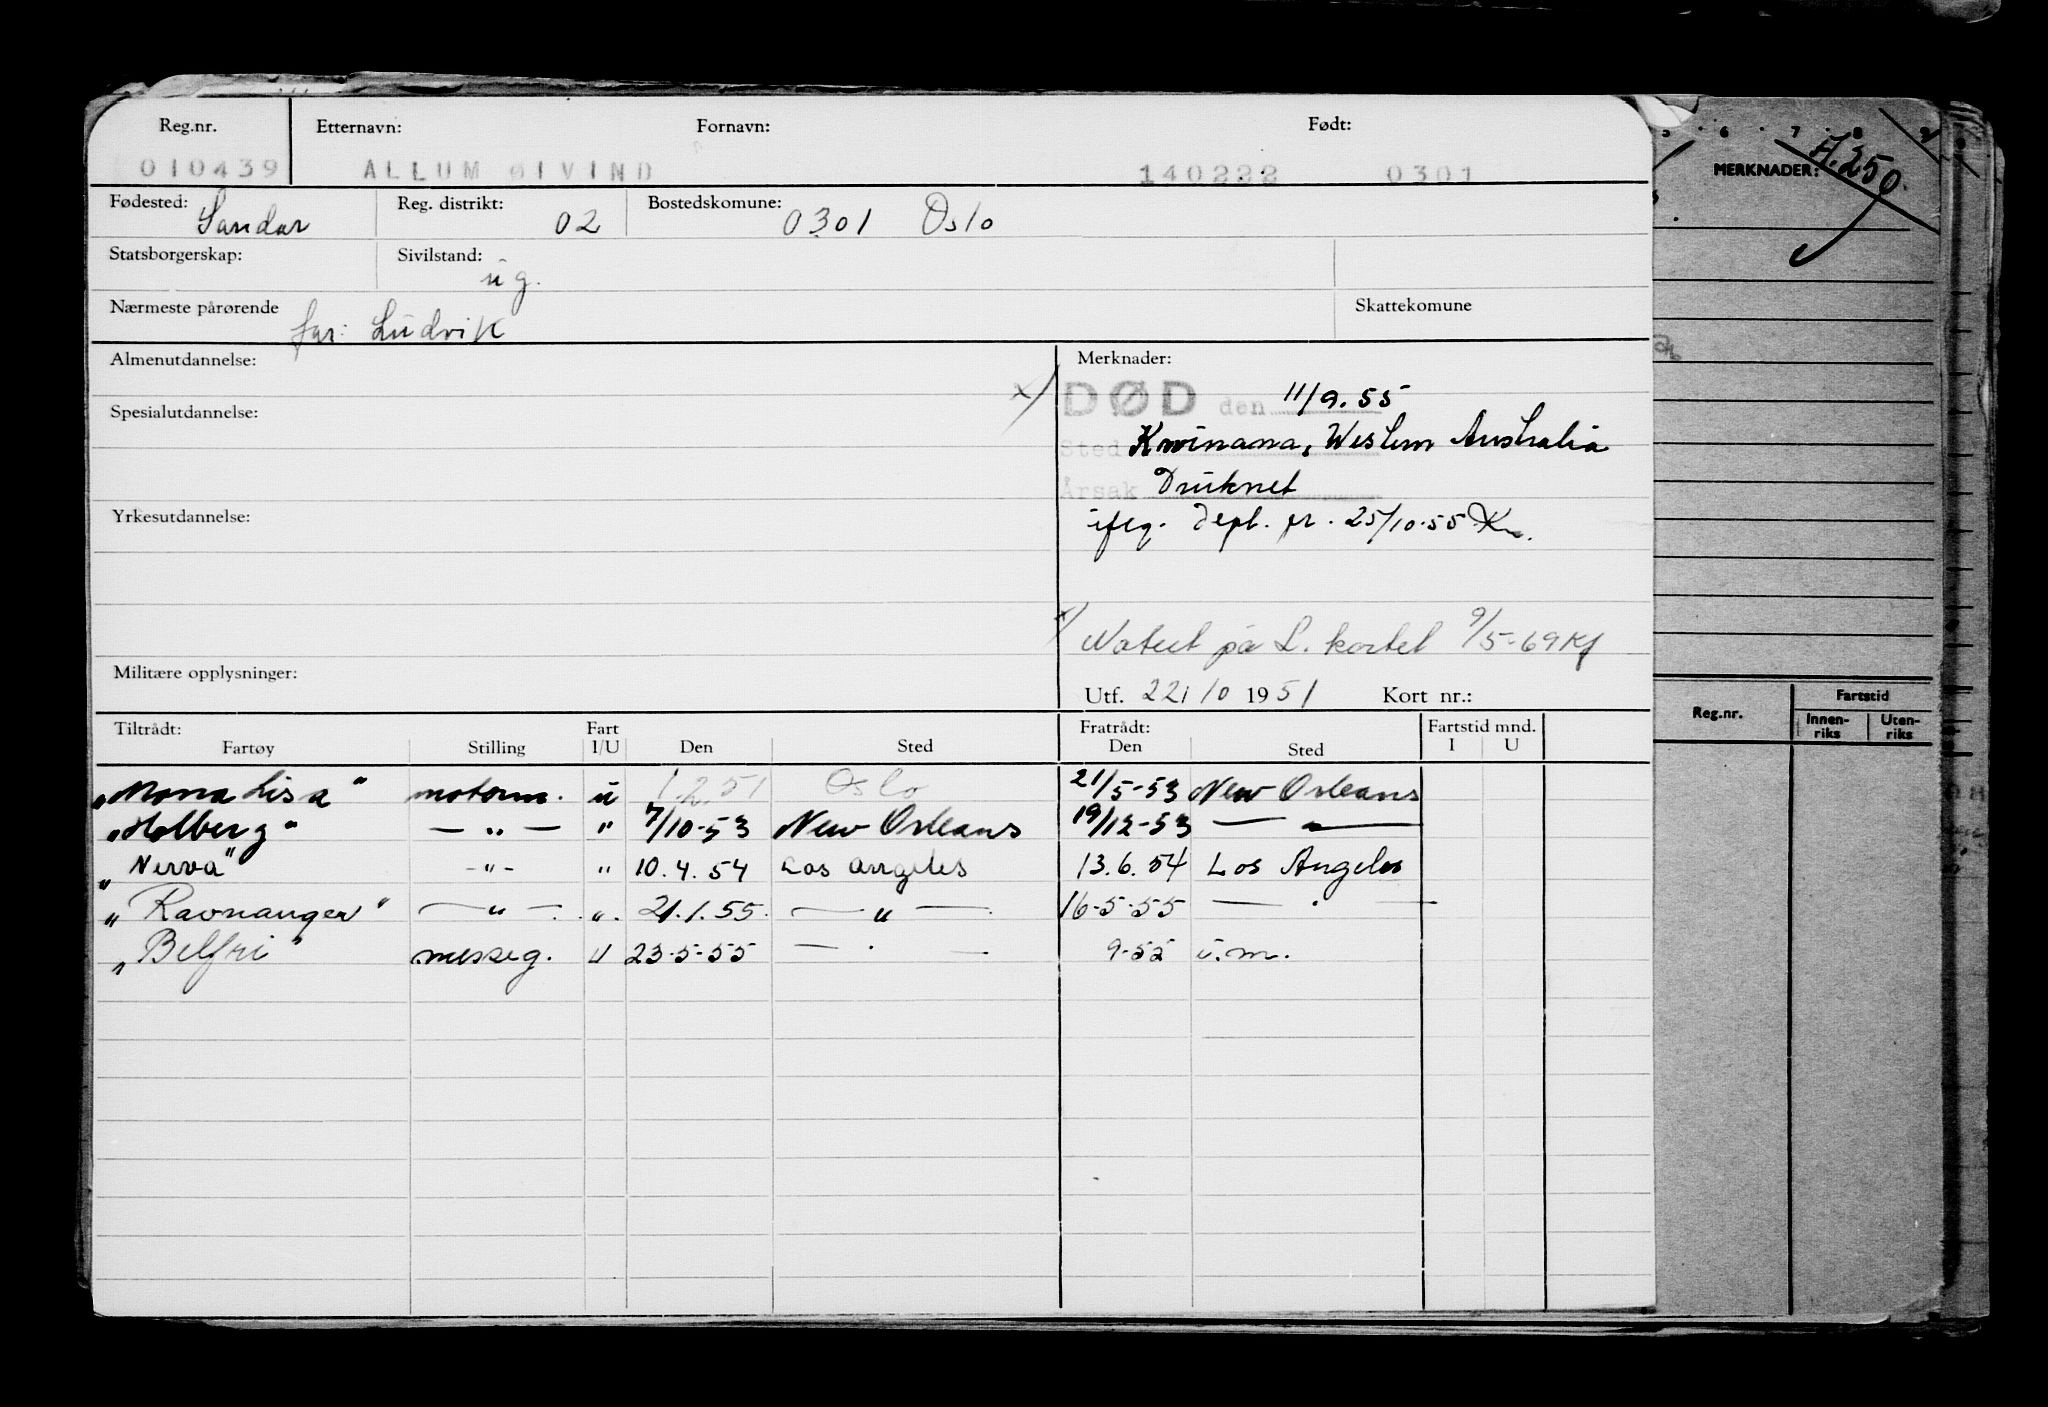 Reg.nr. Etternavn: Fornavn: Født:
010439 ALLUM ØIVIND 140222 0301
Fødested: Sandar Reg. distrikt: 02 Bostedskomune: 0301 Oslo
Statsborgerskap: Sivilstand: ug.
Nærmeste pårørende far: Ludvik Skattekomune
Almenutdannelse: Merknader:
x) DØD den 11/9.55
Spesialutdannelse:
Sted Kwinana, Western Australia
Årsak Druknet
Yrkesutdannelse:
iflg. Dept. br. 25/10-55
x) Notert på L. kortet 9/5-69
Militære opplysninger:
Utf. 22/10 1951 Kort nr.:
Tiltrådt: Fart Fratrådt: Fartstid mnd.
Fartøy Stilling I/U Den Sted Den Sted I U
"Mona Lisa" motorm. u 1.2.51 Oslo 21/5-53 New Orleans
"Holberg" — " — " 7/10-53 New Orleans 19/12-53 — " —
"Nerva" - " - " 10.4.54 Los Angeles 13.6.54 Los Angeles
"Ravnanger" — " — " 21.1.55 — " — 16-5-55 — " —
"Belfri" messeg. U 23-5-55 — " — 9-55 u.m.
5 6 7 8 9
MERKNADER: A.250.
Reg.nr. Fartstid
Innen-
riks Uten-
riks